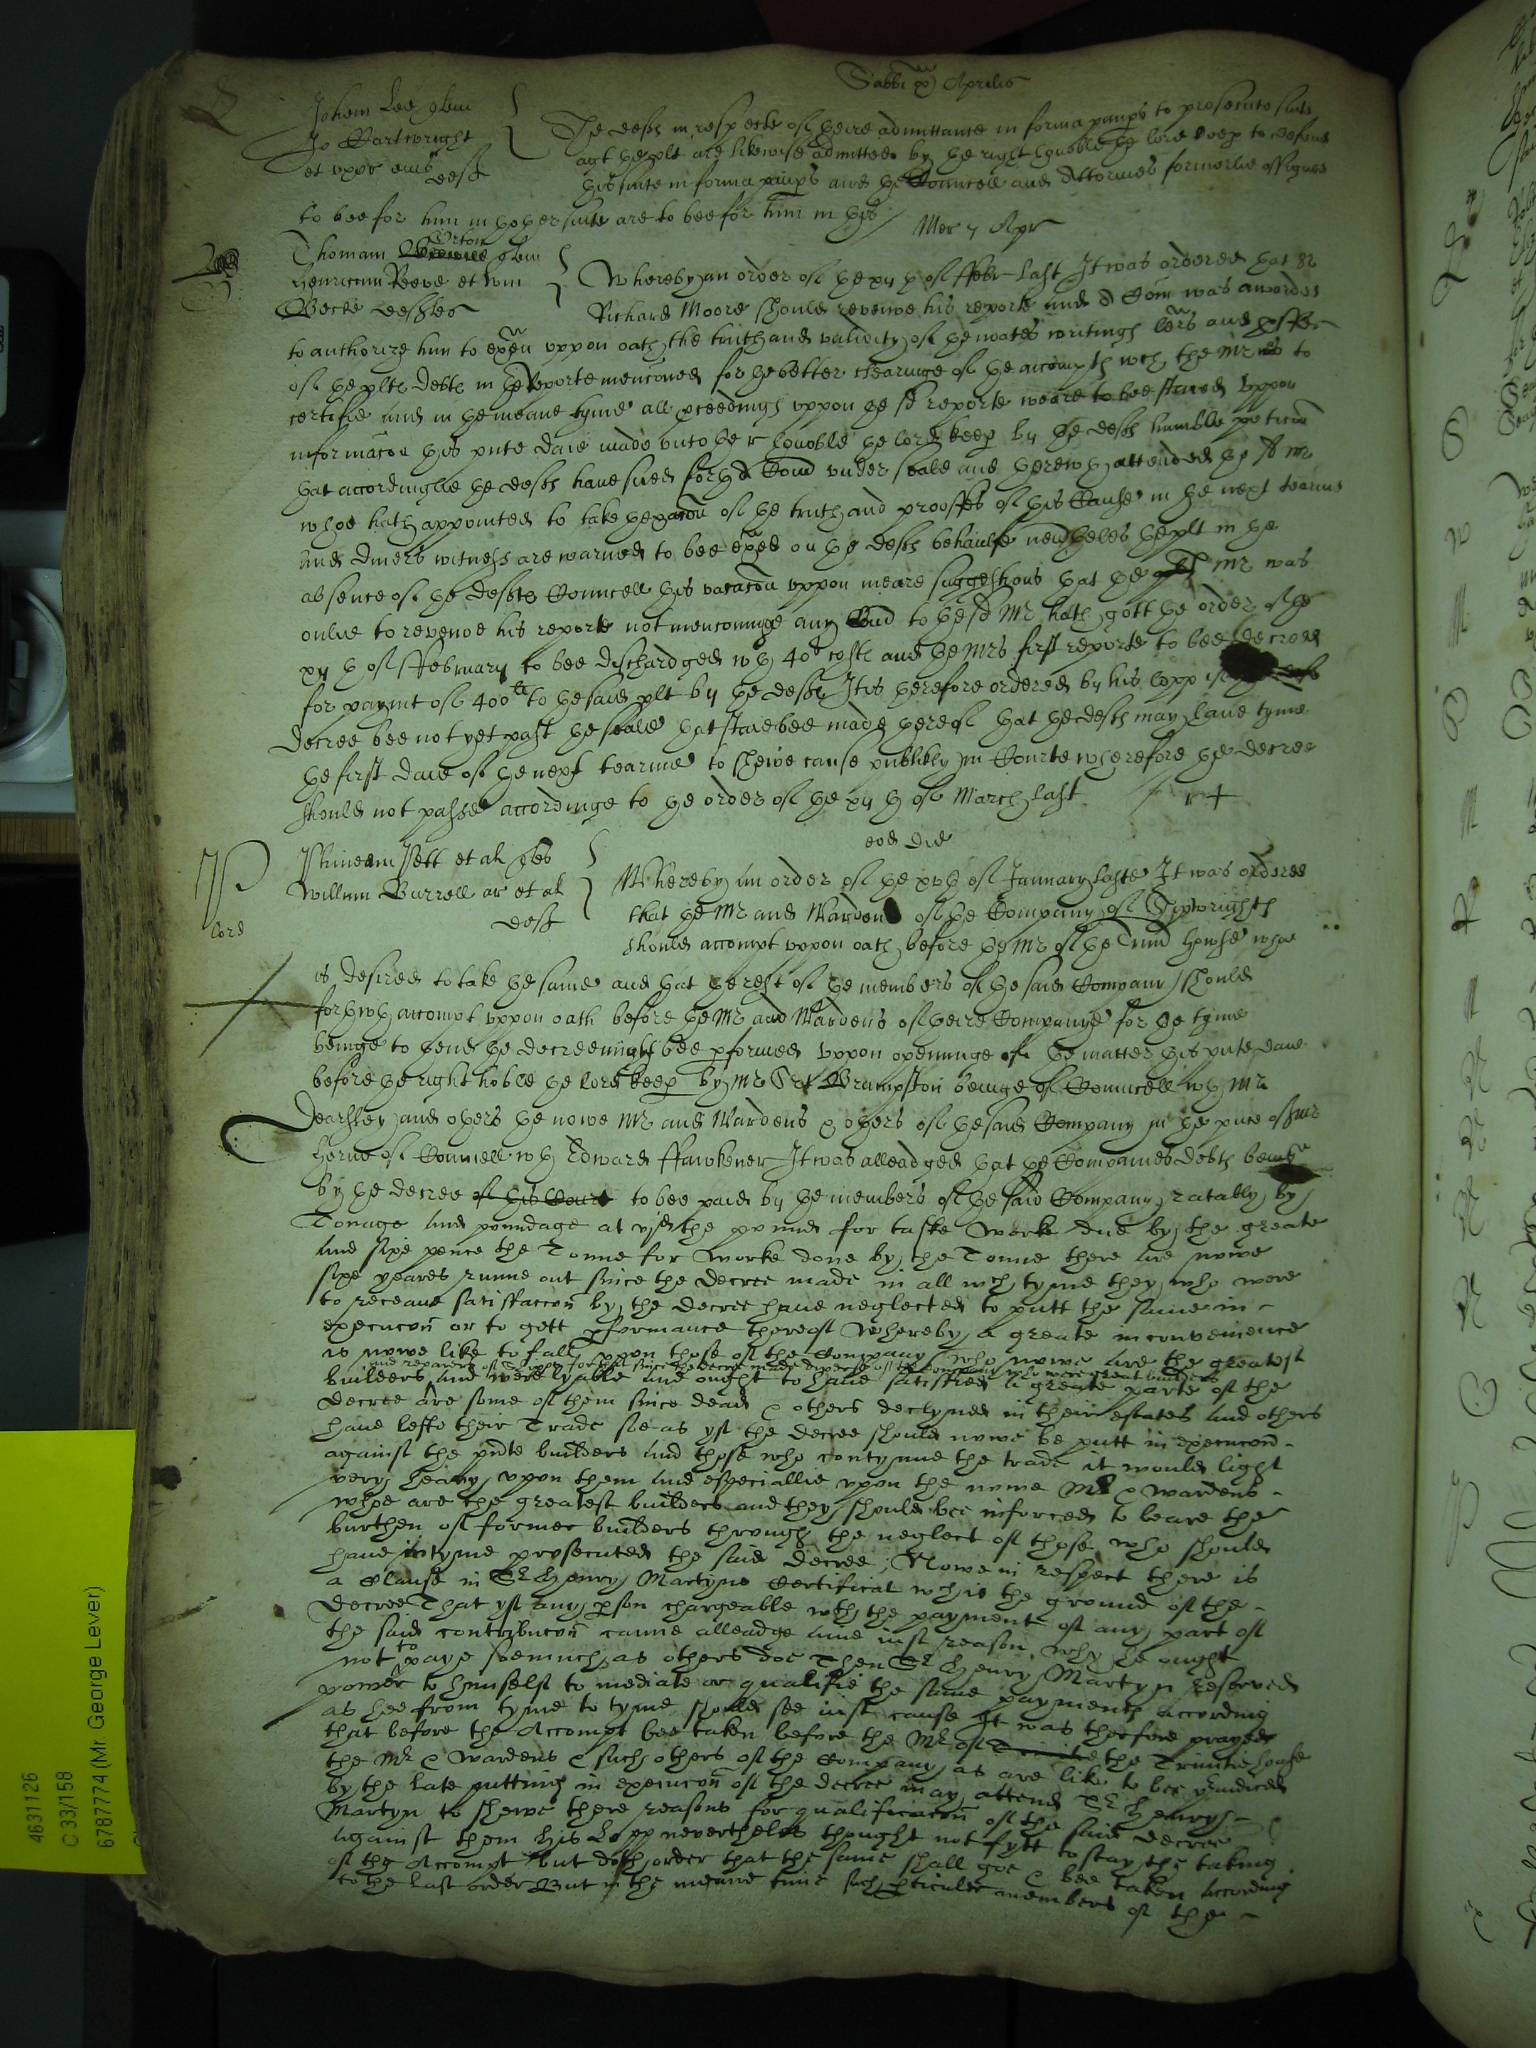 Sabbi xxj Aprilis
Johem Lee quer
Jo Cartwright
et uxor eius
deft
The deft in respecte of theire admittance in forma paupis to prosecute suite
agt the plt are likewise admitted by the right honoble the lord keep to defend
this suite in forma paupis and the Councell and Attornies formerlie assigned
to bee for him in thother suite are to bee for him in this
Mer 7 Apr
Thomam Orton quer
Henricum Reeve et Wm
Becke defltes
Whereby an order of the xij th of ffebr last It was ordered that Sr
Richard Moore should reveiwe his reporte and a Com was awarded
to authorize him to exen uppon oath the truth and validity of the notes writings lres and
of the plts debts in the reporte menconed for the better clearinge of the accompts wch the Mr was to
certifie and in the meane tyme all pceedings uppon the sd reporte weare to bee staied Uppon
informacon this pnte daie made unto the r honoble the lord keep by the defts humble peticon
that accordinglie the defts have sued forth a Com under seale and therewth attended the Mr
whoe hath appointed to take the of the truth and prooffes of this Cause in the next tearme
and divers witness are warned to bee exed on the defts behaulfe nevtheles the plt in the
absence of the defts Councell this vacacon uppon meare suggestions that the Mr was
onlie to reveiwe his reporte not mencominge any Com to the sd Mr hath gott the order of the
xij th of ffebruary to bee dischardged wth 40s costs and the Mrs first reporte to bee decreed
for paymt of 400li to the said plt by the defts It is therefore ordered by his lopp if the
decree bee not yet past the seale that staie bee made thereof that the defts may have tyme
the first daie of the next tearme to shewe cause publikly in Courte wherefore the decree
should not passe accordinge to the order of the xij th of March last
eod die
Phineam Pett et al ques
Willum Burrell ar et al
deft
Whereby an order of the xvth of January laste It was ordered
that the Mr and Wardens of the Company of Shipwrights
should accompt uppon oath before the Mr of the Trind howse whoe
is desired to take the same and that the rest of the members of the said Company should
forthwth accompt uppon oath before the Mr and Wardens of theire Companye for the tyme
beinge to thend the decree might bee pformed Uppon openinge of the matter this pnte daie
before the right hoble the lord keep by Mr Srt Brampston beinge of Councell wth Mr
Dearsley and others the nowe Mr and Wardens & others of the said Company in the pnce of Mr
Herne of Councell wth Edward ffawkener It was alleadged that the Companies debts beinge
by the decree of this Court to bee paid by the members of the said Company ratably by
Tonage and poundage at vjd the pound for taske worke and by the greate
and sixe pence the Tonne for worke done by the Tonne there are nowe
sixe yeares runne out since the decree made in all wch tyme they who were
to receave satisfaccon by the decree have neglected to putt the same in
execucon or to gett pformance thereof Whereby a greate inconvenience
is nowe like to fall uppon those of the Company who nowe are the greatest
builders and
since the decree made divers of the Company who were great builders
were lyable and ought to have satisfied a greate parte of the
decree are some of them since dead & others declyned in their estates and others
have lefte their Trade soe as yf the decree should nowe be putt in execucon
against the pnte builders and those who contynue the trade it would light
very heavy uppon them and especiallie upon the nowe Mr & Wardens
whoe are the greatest builders and they should bee inforced to beare the
burthen of former builders through the neglect of those who should
have in tyme prosecuted the said decree; Nowe in respect there is
a Clause in Sr Henry Martyns Certificat wch is the ground of the
decree That yf any pson chargeable wth the payment of any part of
the said contribucon canne alleadge anie iust reason why he ought
not to paye soe much as others doe Then Sr Henry Martyn reserved
power to himself to mediate or qualifie the same payments according
as hee from tyme to tyme should see iust cause It was therfore prayed
that before the Accompt bee taken before the Mr of the Trinitie house
the Mr & Wardens & such others of the Company as are like to bee priudiced
by the late putting in execucon of the decree may attend Sr Henry
Martyn to shewe there reasons for qualificacon of the said decree
against them His Lopp nevertheles thought not fytt to stay the taking
of the Accompt but doth order that the same shall goe & bee taken according
to the last order But in the meane time such pticuler members of the
Lord
4631126
C 33/158
6787774 (Mr. George Lever)